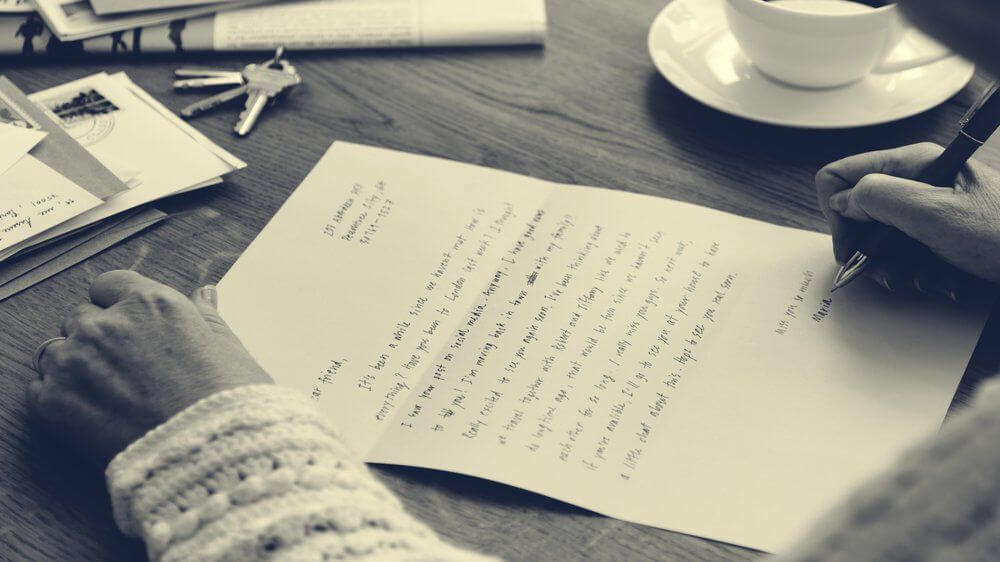 Peachtree City, GA
30269-3527
Dear friend,
It's been a while since we haven't met. How is
everything? Have you been to London last week? I thought
I saw your post on social media. Anyway, I have good news
to you! I'm moving back in town with my family!!
Really excited to see you again soon. I've been thinking about
we travel together with Robert and Tiffany like we used to
do long time ago, that would be fun since we haven't seen
each other for so long. I really miss you guys. So next week,
if you're available, I'll go to see you at your house to have
a little chat about this. Hope to see you real soon.
Miss you so much
Maria